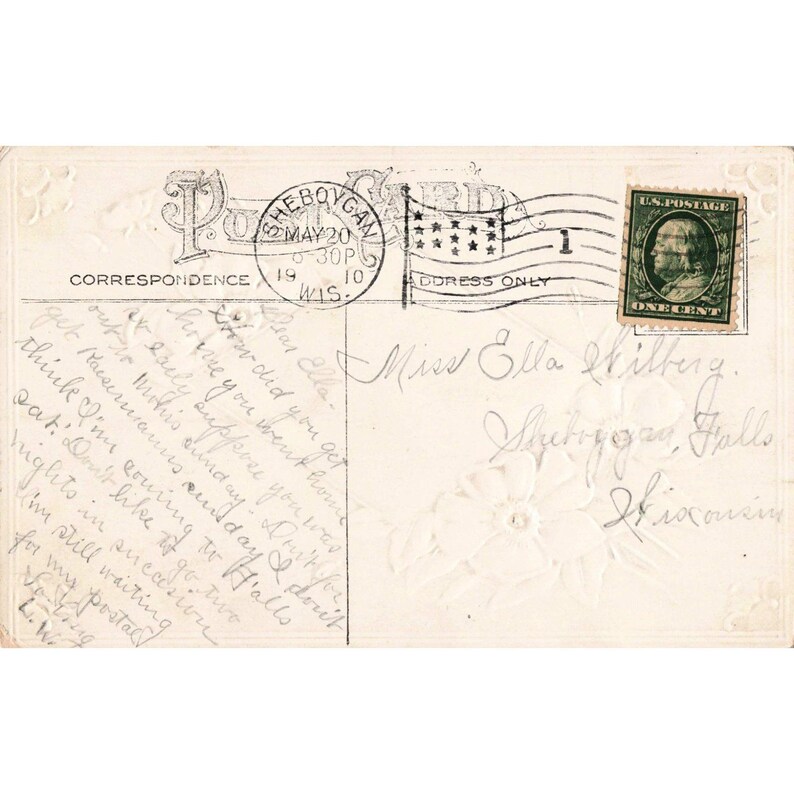 POST CARD
SHEBOYGAN
MAY 20
30P
1910
WIS.
1
U.S. POSTAGE
ONE CENT
CORRESPONDENCE
ADDRESS ONLY
Dear Ella-
How did you get
home you went home
so early suppose you was
out to sunday. Don't you
get sunday I don't
think I'm coming to Falls
sat. Don't like to go two
nights in succesion
I'm still waiting
for my postal
So Long
L.W.
Miss Ella Wilberg.
Sheboygan Falls
Wisconsin